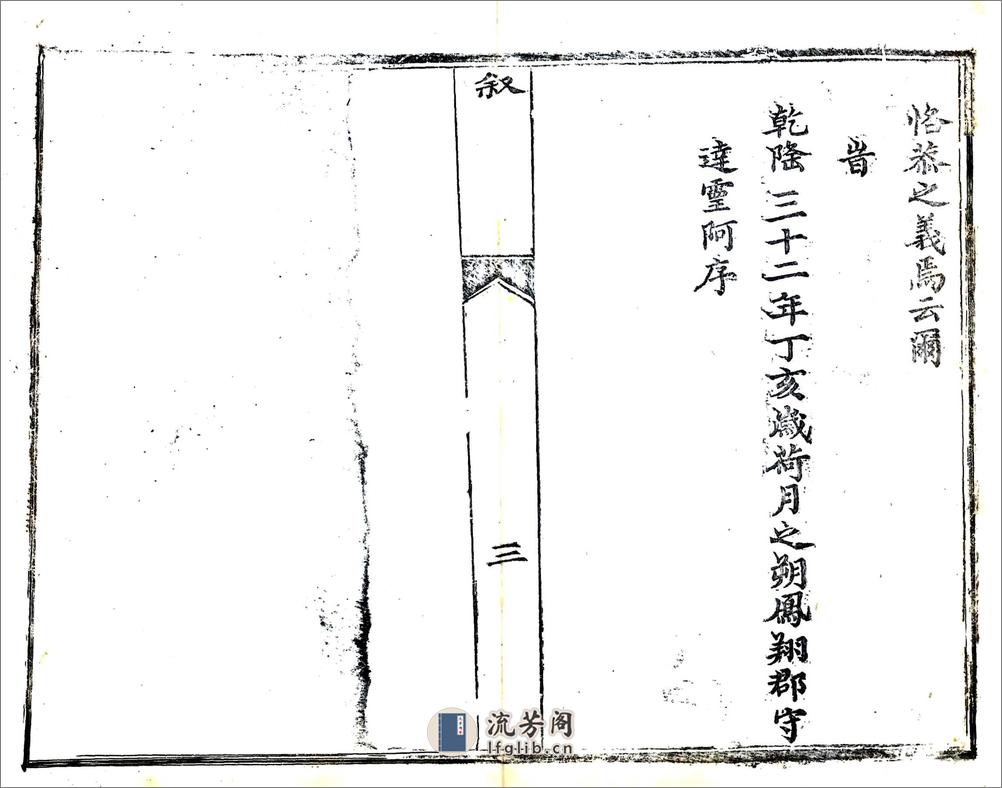 恪恭之義焉云爾
旹
乾隆三十二年丁亥歲荷月之朔鳳翔郡守
達靈阿序
叙
三
流芳阁
lfglib.cn